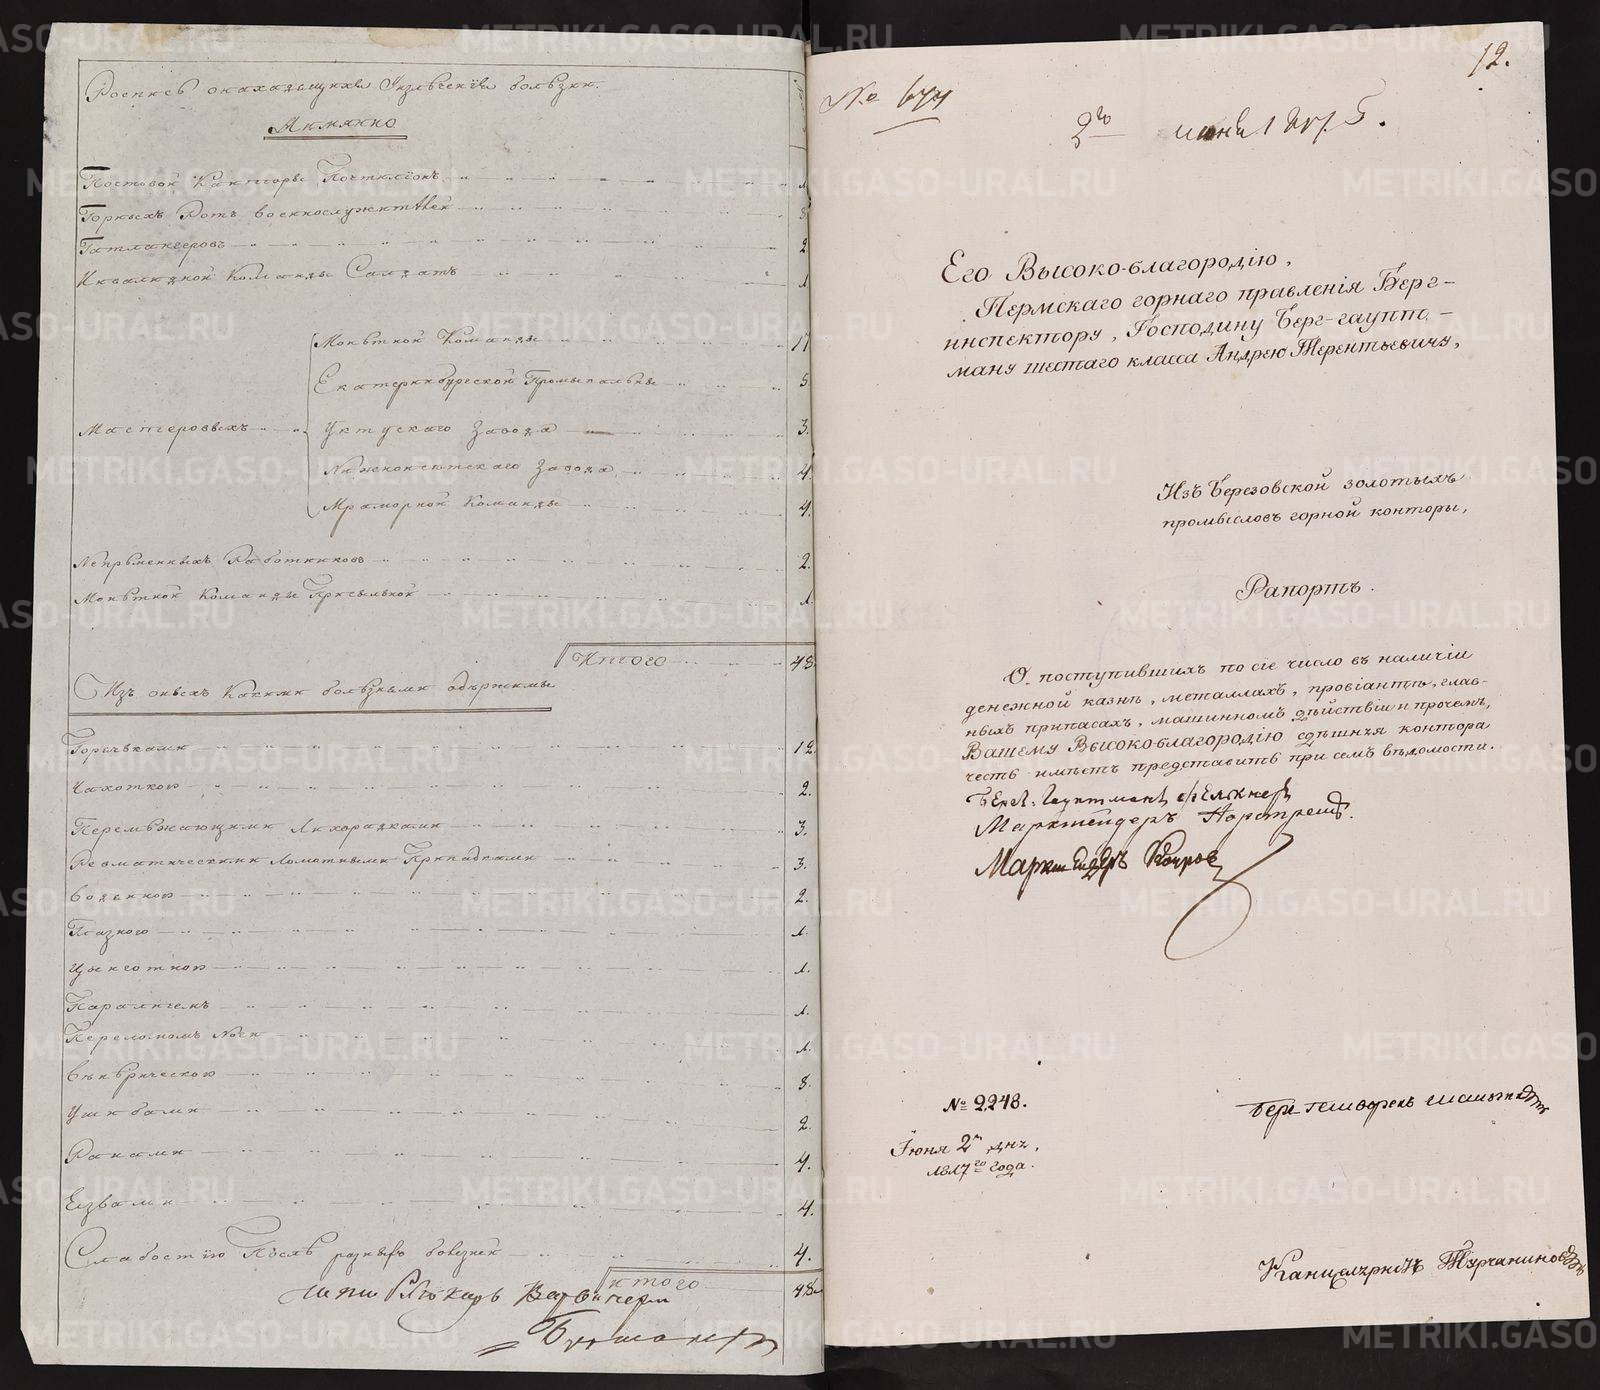 Роспись онаходящихся Излѣченiи болѣзни.
Имянно
Постовой Канторы Почтилiонъ 1
Горныхъ Ротъ военнослужителей 8
Гатлангеровъ 2
Инвалидной Команды Салдатъ 1
Монѣтной Команды 17
Екатеринбургской Промывальны 5
Мастеровыхъ Уктускаго Завода 3.
Нижнеисетскаго Завода 4
Мраморной Команды 4.
Непрѣменныхъ Работниковъ 2.
Монѣтной Команды Присыльной 1
Итого 48.
Изъ оныхъ Какими болѣзньми одържимы
Горячьками 12.
Чахоткою 2.
Перемѣжающими Лихорадками 3.
Ревматическими Ломотными Припадками 3.
Водяною 2.
Глазною 1.
Цынготною 1.
Параличемъ 1.
Переломомъ Ноги 1.
Вѣнерическою 8.
Ушибами 2.
Ранами 4.
Езвами 4.
Слабостiю Послѣ разныхъ болезней 4.
Итого 48
12.
№ 644
2го июня 1817.
Его Высоко-благородiю,
Пермскаго горнаго правленiя Берг-
инспектору, Господину Берг-гаупт-
ману шестаго класса Андрею Терентьевичу,
Изъ Березовской золотыхъ
промысловъ горной конторы,
Рапортъ.
О поступившихъ по сiе число въ наличiи
денежной казнѣ, металлахъ, провiантѣ, глав-
ныхъ припасахъ, машинномъ дѣйствiи и прочемъ,
Вашему Высоко-благородiю здѣшняя контора
честь имѣетъ представить при семъ вѣдомости.
Берг-Гауптманъ Фелькнеръ
Маркшейдеръ Норстремъ.
Маркшейдеръ
№ 2248.
Iюня 2го дня,
1817го года.
Берггешворенъ
Канцеляристъ Турчаниновъ
METRIKI.GASO-URAL.RU